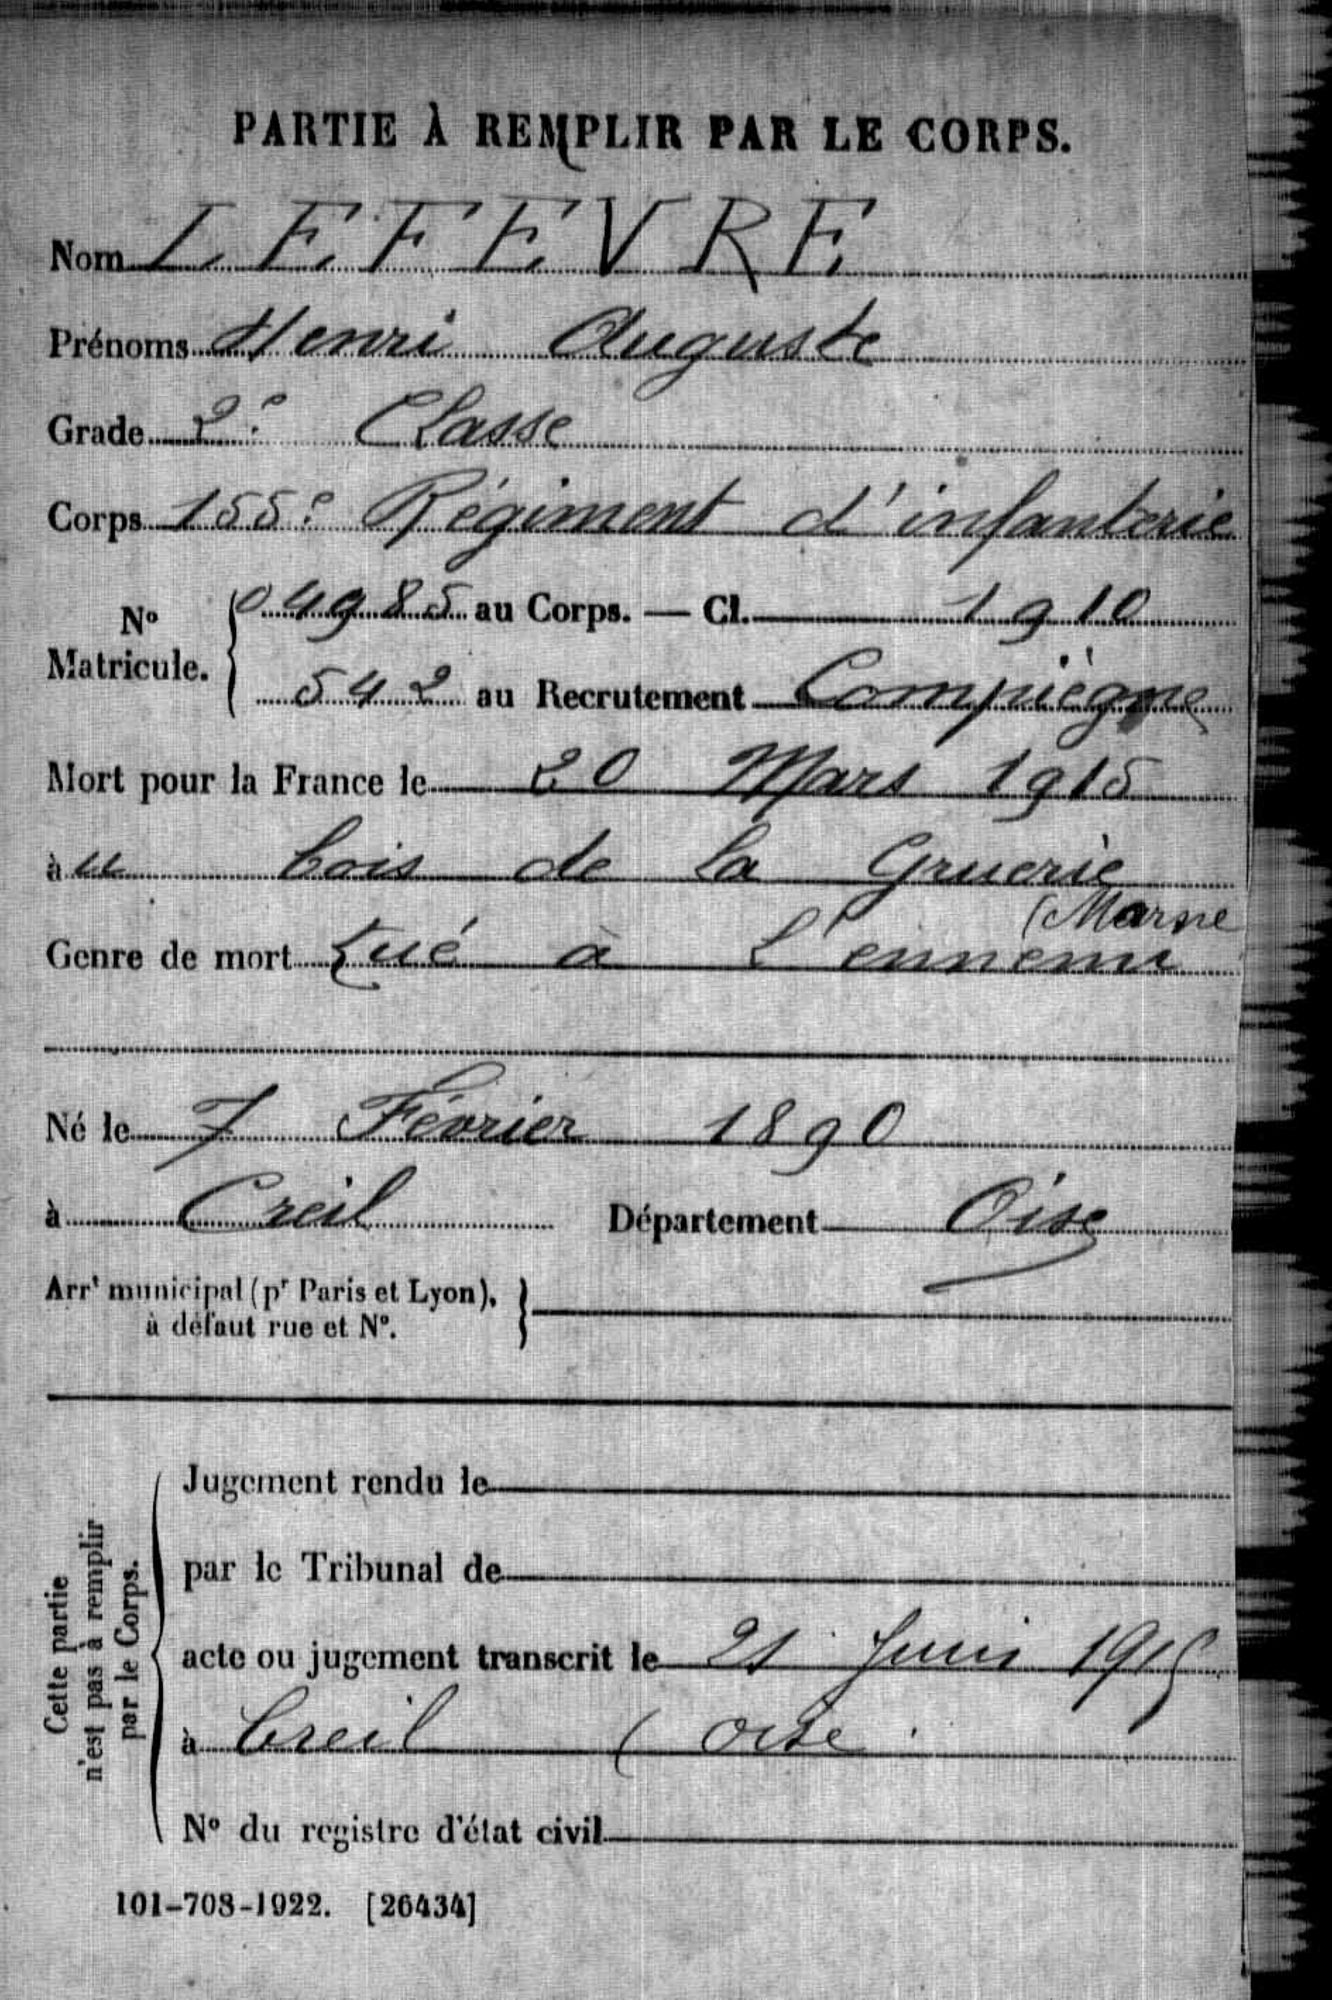 PARTIE À REMPLIR PAR LE CORPS.
Nom LEFEVRE
Prénoms Henri Auguste
Grade 2e Classe
Corps 155e Régiment d'infanterie
No Matricule. { 04985 au Corps. — Cl. 1910
542 au Recrutement Compiègne
Mort pour la France le 20 Mars 1915
à u bois de la Gruerie
(Marne
Genre de mort tué à l'ennemi
Né le 7 Février 1890
à Creil Département Oise
Arrt municipal (pr Paris et Lyon), }
à défaut rue et No.
Cette partie
n'est pas à remplir
par le Corps.
Jugement rendu le
par le Tribunal de
acte ou jugement transcrit le 21 Juin 1915
à Creil (Oise
No du registre d'état civil
101-708-1922. [26434]